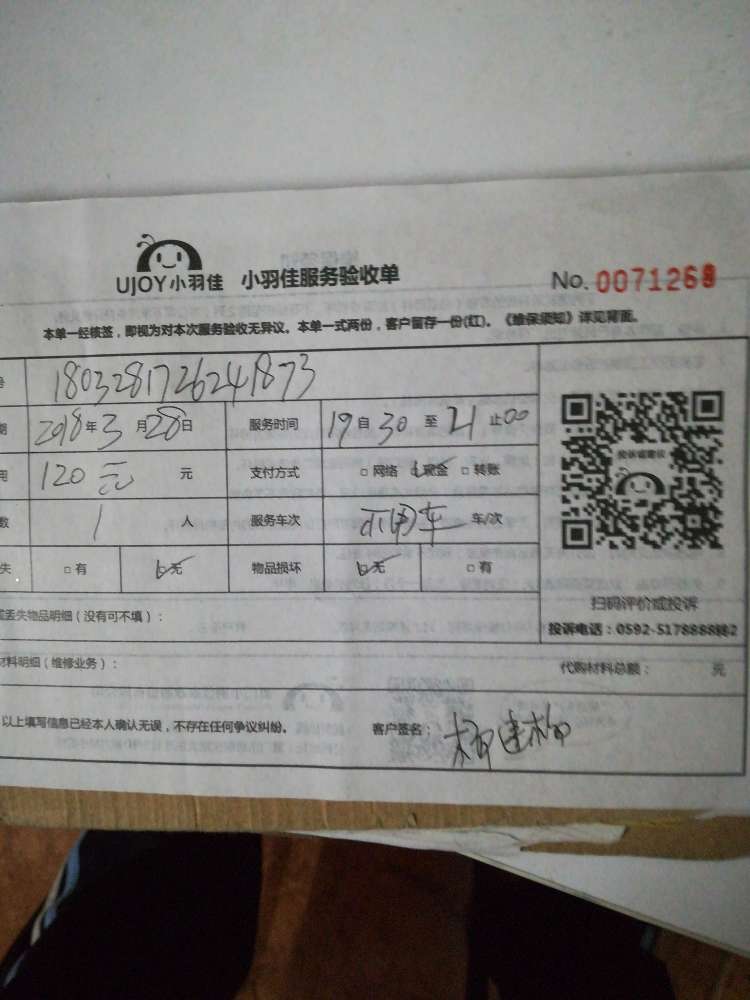 UJOY小羽佳 小羽佳服务验收单 No. 0071268
本单一经核签，即视为对本次服务验收无异议。本单一式两份，客户留存一份(红)。《维保须知》详见背面。
号 1803281726241873
期 2018年3月28日 服务时间 19自30至21止00
用 120元 元 支付方式 □网络 □现金 □转账
数 1 人 服务车次 不用车 车/次
失 □有 □无 物品损坏 □无 □有
投诉或建议
扫码评价或投诉
或丢失物品明细（没有可不填）：
投诉电话：0592-5178888转2
材料明细（维修业务）： 代购材料总额： 元
以上填写信息已经本人确认无误，不存在任何争议纠纷。 客户签名：